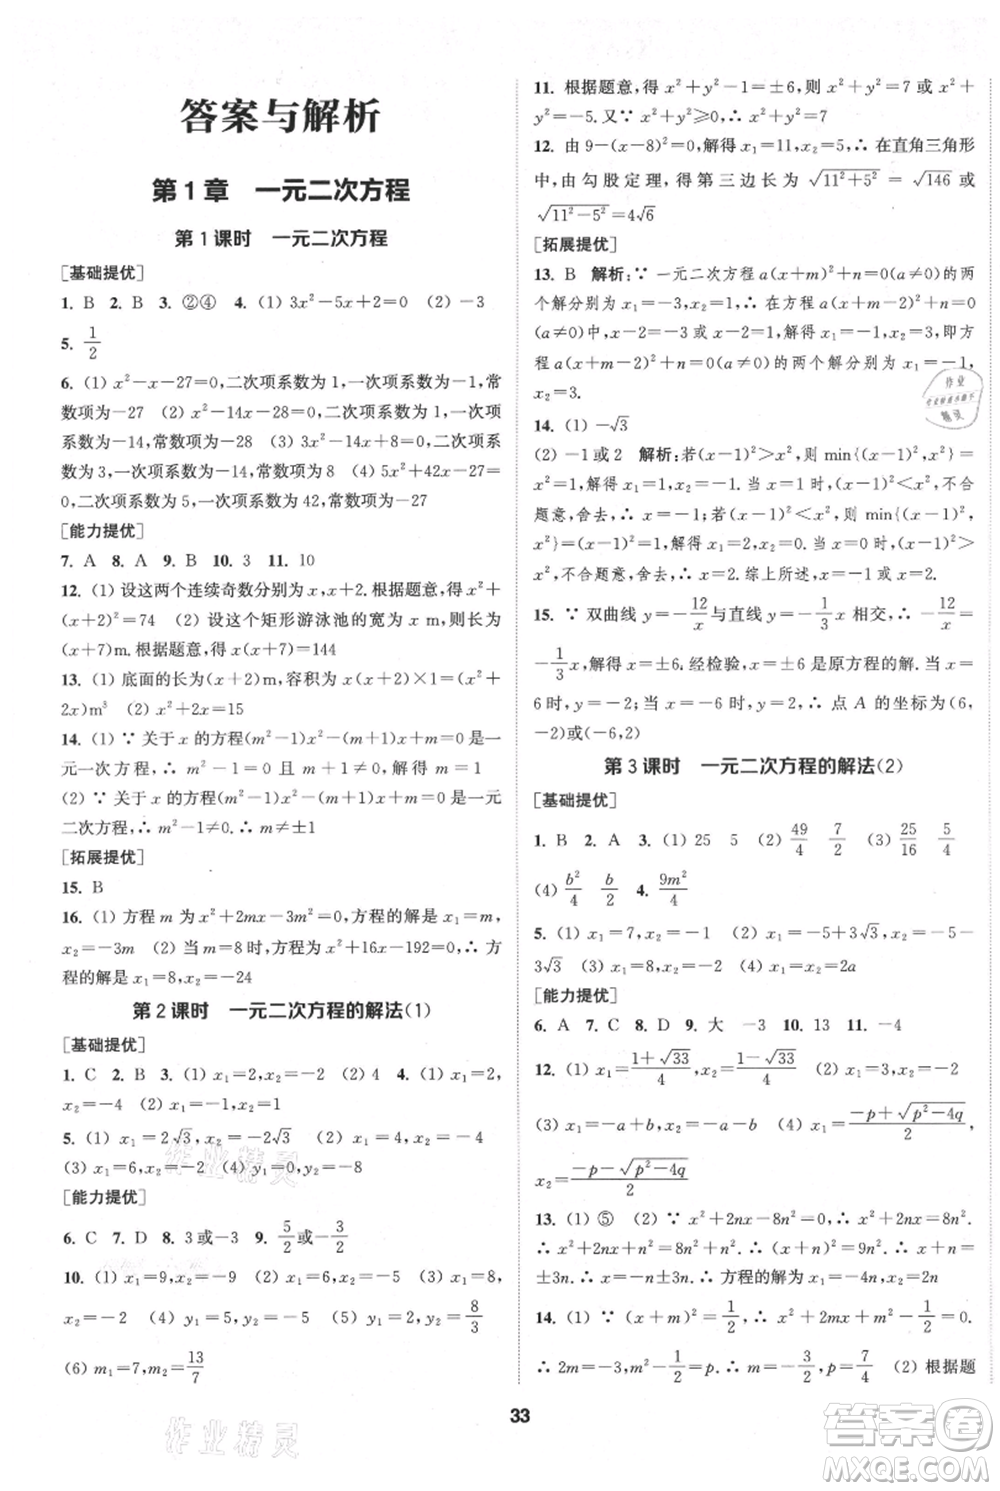 答案与解析
第1章 一元二次方程
第1课时 一元二次方程
[基础提优]
1. B 2. B 3. ②④ 4. (1) 3x²-5x+2=0 (2) -3
5. 1/2
6. (1) x²-x-27=0,二次项系数为1,一次项系数为-1,常
数项为-27 (2) x²-14x-28=0,二次项系数为1,一次项
系数为-14,常数项为-28 (3) 3x²-11x+8=0,二次项系
数为3,一次项系数为-11,常数项为8 (4) 5x²+42x-27=
0,二次项系数为5,一次项系数为42,常数项为-27
[能力提优]
7. A 8. A 9. B 10. 3 11. 10
12. (1) 设这两个连续奇数分别为x,x+2.根据题意,得x²+
(x+2)²=74 (2) 设这个矩形游泳池的宽为x m,则长
为(x+7)m.根据题意,得x(x+7)=144
13. (1) 底面的长为(x+2)m,容积为x(x+2)×1=(x²+
2x)m³ (2) x²+2x=15
14. (1) ∵ 关于x的方程(m²-1)x²-(m+1)x+m=0是一
元一次方程,∴ m²-1=0且m+1≠0.∴ m=1
(2) ∵ 关于x的方程(m²-1)x²-(m+1)x+m=0是一元
二次方程,∴ m²-1≠0.∴ m≠±1
[拓展提优]
15. B
16. (1) 方程m为x²+2mx-3m²=0,方程的解是x₁=m,
x₂=-3m (2) 当m=8时,方程为x²+16x-192=0,方
程的解是x₁=8,x₂=-24
第2课时 一元二次方程的解法(1)
[基础提优]
1. C 2. B 3. (1) x₁=2,x₂=-2 (2) 4 4. (1) x₁=2,
x₂=-4 (2) x₁=-2,x₂=1
5. (1) x₁=2√3,x₂=-2√3 (2) x₁=4,x₂=-4
(3) x₁=6,x₂=-2 (4) y₁=0,y₂=-8
[能力提优]
6. C 7. D 8. 3或-3 9. 5/2或-3/2
10. (1) x₁=9,x₂=-9 (2) x₁=5,x₂=-5 (3) x₁=8,
x₂=-2 (4) y₁=5,y₂=-5 (5) y₁=4,y₂=8/3
(6) m₁=7,m₂=13/7
11. 根据题意,得x²+y²-1=±6,∴ x²+y²=7或x²+
y²=-5.又∵ x²+y²≥0,∴ x²+y²=7
12. 由9-(x-8)²=0,解得x₁=11,x₂=5,∴ 在直角三角形
中,由勾股定理,得第三边长为√(11²+5²)=√146或
√(11²-5²)=4√6
[拓展提优]
13. B 解析:∵ 一元二次方程a(x+m)²+n=0(a≠0)的两
个解分别为x₁=-3,x₂=1,∴ 方程a(x+m-2)²+n=0
(a≠0)中,x-2=-3或x-2=1,解得x=-1或x=3,即方
程a(x+m-2)²+n=0(a≠0)的两个解分别为x₁=-1,
x₂=3.
14. (1) -√3
(2) -1或2 解析:若(x-1)²>x²,则min{(x-1)²,x²}=
x²=1,解得x₁=1,x₂=-1.当x=1时,(x-1)²<x²,不合
题意,舍去,∴ x=-1;若(x-1)²<x²,则min{(x-1)²,
x²}=(x-1)²=1,解得x₁=0,x₂=2.当x=0时,(x-1)²>
x²,不合题意,舍去,∴ x=2.综上所述,x=2或-1.
15. ∵ 双曲线y=-12/x与直线y=-1/3x相交,∴ -12/x=
-1/3x,解得x=±6.经检验,x=±6是原方程的解.当x=
6时,y=-2;当x=-6时,y=2,∴ 点A的坐标为(6,
-2)或(-6,2)
第3课时 一元二次方程的解法(2)
[基础提优]
1. B 2. A 3. (1) 25 5 (2) 49/4 7/2 (3) 25/16 5/4
(4) b²/4 b/2 4. 9m²/4
5. (1) x₁=7,x₂=-1 (2) x₁=-5+3√3,x₂=-5-
3√3 (3) x₁=8,x₂=2 (4) x₁=x₂=2a
[能力提优]
6. A 7. C 8. D 9. 大 -3 10. 13 11. -4
12. (1) x₁=(1+√33)/4,x₂=(1-√33)/4 (2) x₁=x₂=-2
(3) x₁=-a+b,x₂=-a-b (4) x₁=(-p+√(p²-4q))/2,
x₂=(-p-√(p²-4q))/2
13. (1) ⑤ (2) ∵ x²+2nx-8n²=0,∴ x²+2nx=8n².
∴ x²+2nx+n²=8n²+n².∴ (x+n)²=9n².∴ x+n=
±3n.∴ x=-n±3n.∴ 方程的解为x₁=-4n,x₂=2n
14. (1) ∵ (x+m)²=1/2,∴ x²+2mx+m²-1/2=0.
∴ 2m=-3,m²-1/2=p.∴ m=-3/2,p=7/4 (2) 根据题
33
作业精灵
作业精灵
作业
精灵
答案卷
MXQE.COM